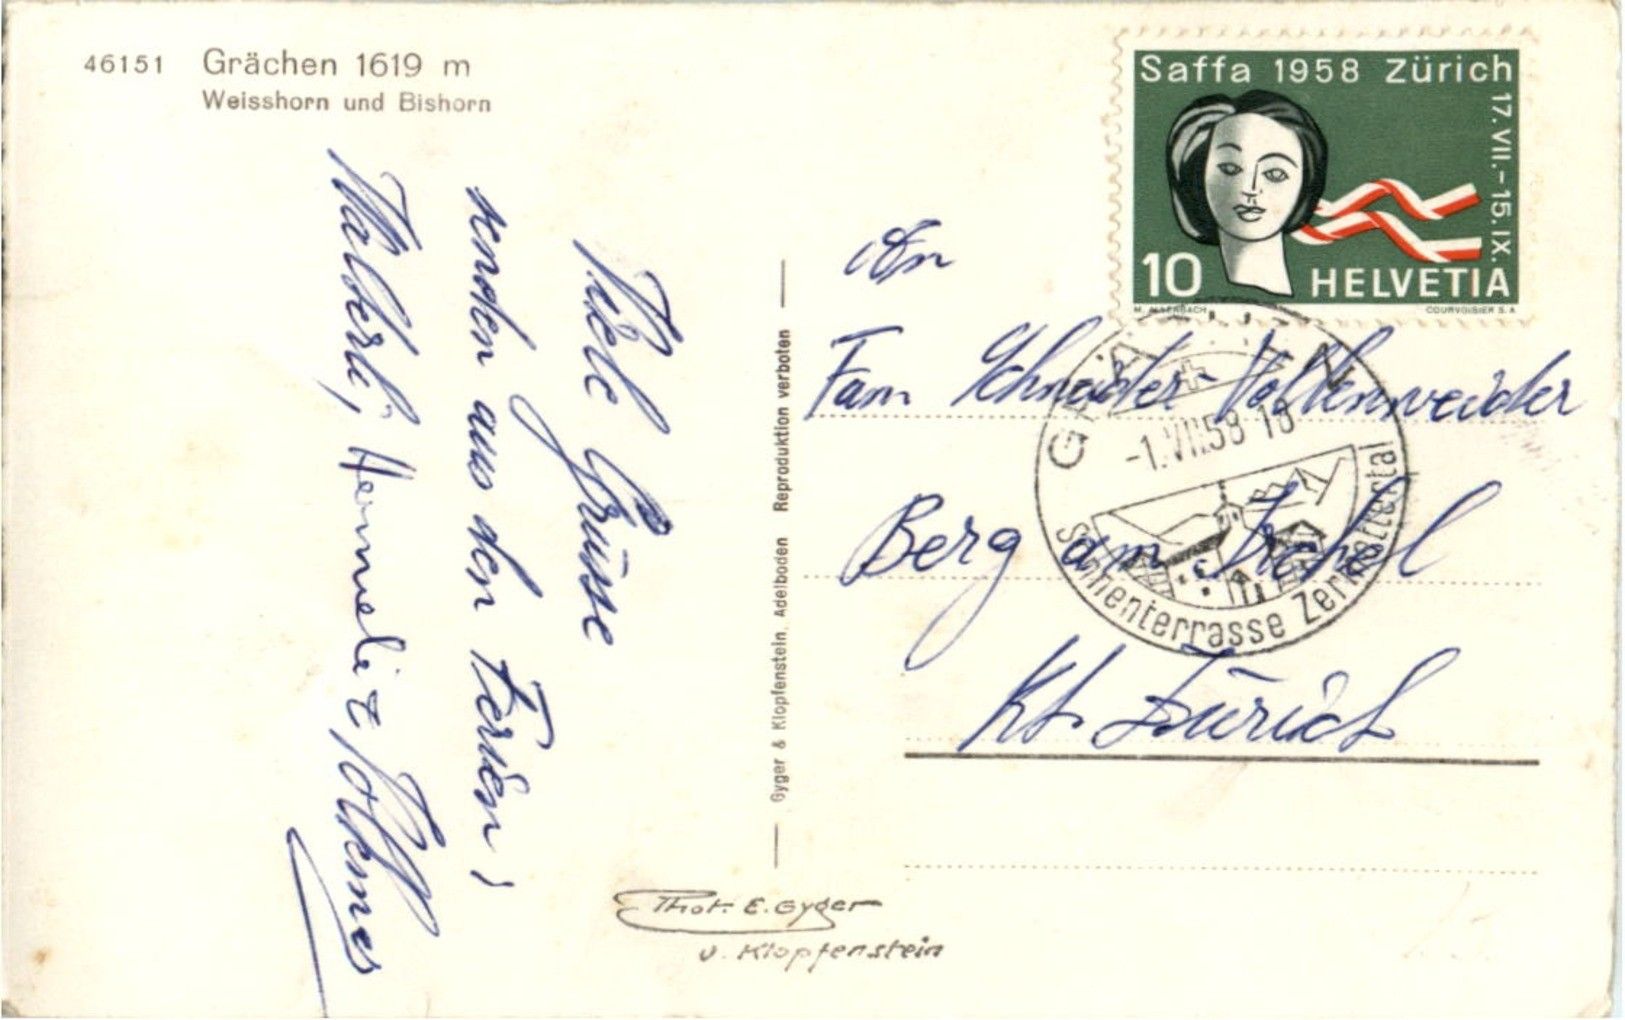 46151 Grächen 1619 m
Weisshorn und Bishorn
Viele Grüsse
senden aus den Ferien;
Gyger & Klopfenstein, Adelboden Reproduktion verboten
Phot. E. Gyger
u. Klopfenstein
Saffa 1958 Zürich
17.VII.-15.IX.
10 HELVETIA
COURVOISIER S.A
-1.VII.58 18
Sonnenterrasse Zermattertal
An
Fam Schneider-Volkenweider
Berg am Irchel
Kt. Zürich